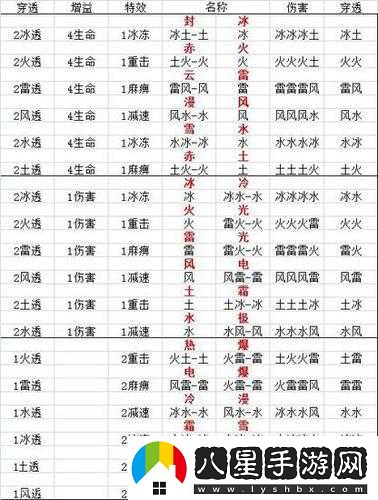 穿透 增益 特效 名称 伤害 穿透
封 冰
2冰透 4生命 1冰冻 冰土-土 冰 冰冰冰土 冰土
赤 火
2火透 4生命 1重击 土火-火 火 火火火土 火土
云 雷
2雷透 4生命 1麻痹 雷风-风 雷 雷雷雷风 雷风
漫 风
2风透 4生命 1减速 风水-水 风 风风风水 风水
雪 水
2水透 4生命 1冰冻 水冰-冰 水 水水水冰 水冰
赤 土
2土透 4生命 1麻痹 土火-火 土 土土土火 土火
冰 冷
2冰透 1伤害 1冰冻 冰 冰水-水 冰冰冰水 冰水
火 光
2火透 1伤害 1重击 火 雷火-火 火火火雷 火雷
雷 光
2雷透 1伤害 1麻痹 雷 雷火-火 雷雷雷火 雷火
风 电
2风透 1伤害 1减速 风 风雷-雷 风风风雷 风雷
土 霜
2土透 1伤害 1重击 土 土冰-冰 土土土冰 土冰
水 极
2水透 1伤害 1减速 水 水风-风 水水水风 水风
热 爆
1火透 2重击 火土-土 火雷-雷 土火火雷 土雷
电 爆
1雷透 2麻痹 风雷-雷 火雷-雷 火雷雷风 火风
冷 漫
1水透 2减速 冰水-水 风水-水 冰水水风 水水
霜 雪
1冰透 2
1土透 2
1风透 2
八星手游网
www.lyshbx.com